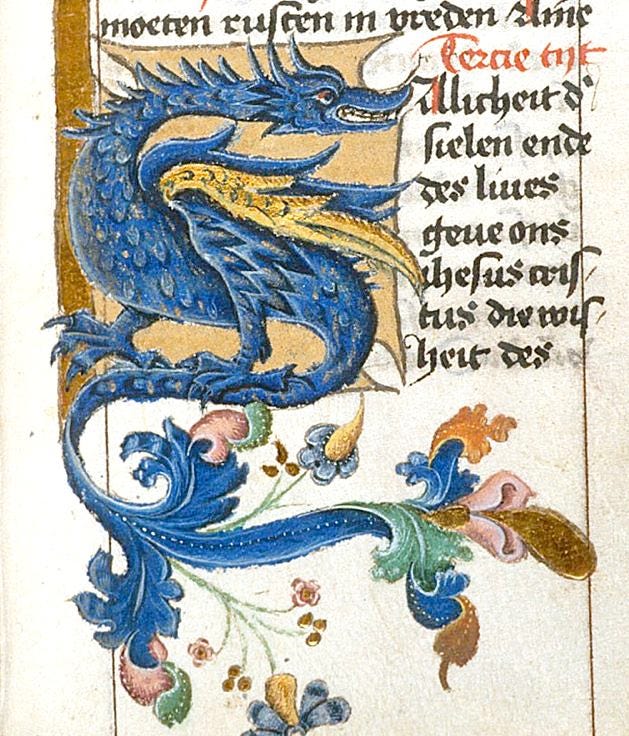 moeten rusten in vreden Ame
Tercie tijt
Allicheit d'
sielen ende
des liues
geue ons
ihesus cris/
tus die wis/
heit des